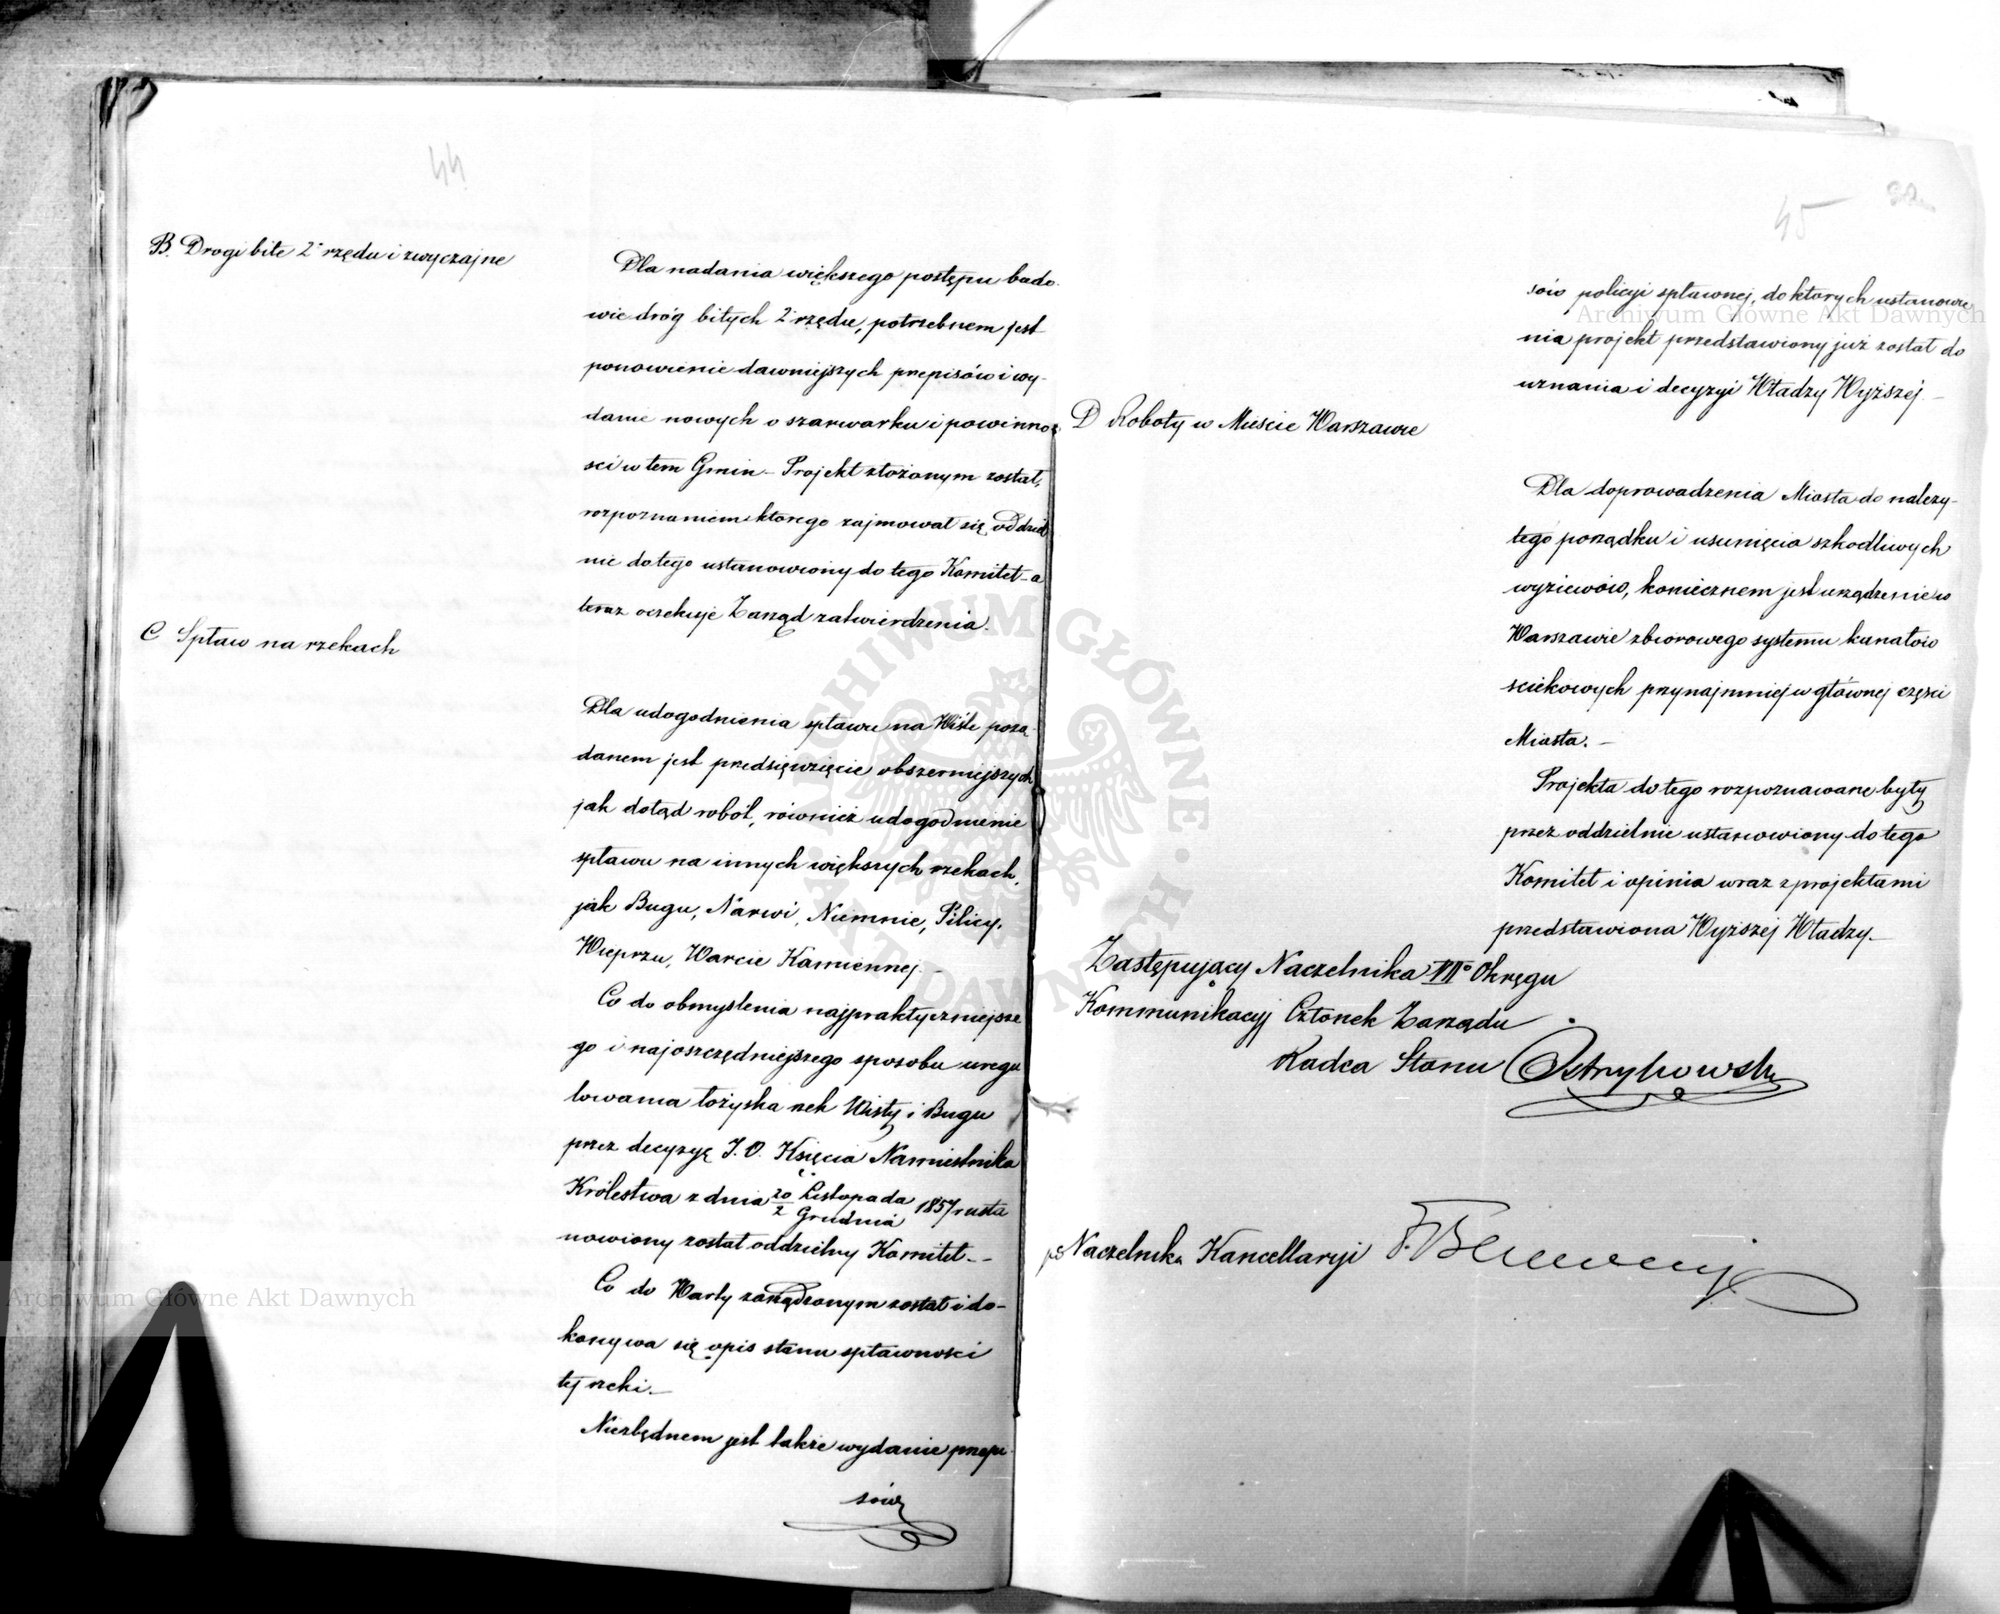 44
B. Drogi bite 2° rzędu i zwyczajne
Dla nadania większego postępu budo-
wie dróg bitych 2° rzędu, potrzebnem jest
ponowienie dawniejszych przepisów i wy-
danie nowych o szarwarku i powinno-
ści w tem Gmin – Projekt złożonym został,
rozpoznaniem ktorego zajmował się oddziel
nie do tego ustanowiony do tego Komitet – a
teraz oczekuje Zarząd zatwierdzenia.
C Spław na rzekach
Dla udogodnienia spławu na Wiśle pożą-
danem jest przedsięwzięcie obszerniejszych
jak dotąd robót, również udogodnienie
spławu na innych większych rzekach,
jak Bugu, Narwi, Niemnie, Pilicy,
Wieprzu, Warcie Kamiennej. –
Co do obmyslenia najpraktyczniejsze
go i najoszczędniejszego sposobu uregu
lowania łożyska rzek Wisły i Bugu
przez decyzyę J. O. Księcia Namiestnika
Królestwa z dnia 20 Listopada / 2 Grudnia 1857 r usta
nowiony został oddzielny Komitet. –
Co do Warty zarządzonym został i do-
konywa się opis stanu spławności
tej rzeki. –
Niezbędnem jest także wydanie przepi-
sów
45
sów policyi spławnej, do ktorych ustanowie
nia projekt przedstawiony już został do
uznania i decyzyi Władzy Wyższej. –
D Roboty w Mieście Warszawie
Dla doprowadzenia Miasta do należy-
tego porządku i usunięcia szkodliwych
wyziewów, koniecznem jest urządzenie w
Warszawie zbiorowego systemu kanałów
ściekowych przynajmniej w głównej części
Miasta. –
Projekta do tego rozpoznawane były
przez oddzielnie ustanowiony do tego
Komitet i opinia wraz z projektami
przedstawiona Wyższej Władzy. –
Zastępujący Naczelnika XIII° Okręgu
Kommunikacyj Członek Zarządu
Radca Stanu Ostrykowski
Naczelnika Kancellaryi F.
Archiwum Główne Akt Dawnych
Archiwum Główne Akt Dawnych
ARCHIWUM GŁÓWNE • AKT DAWNYCH •